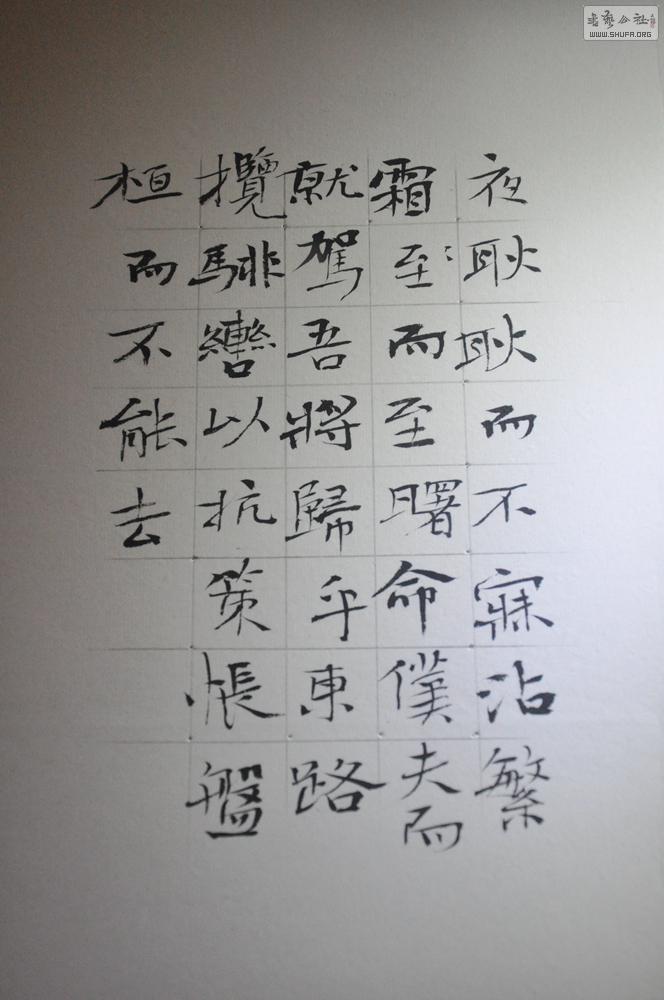 夜耿耿而不寐沾繁
霜至而至曙命僕夫而
就駕吾將歸乎東路
攬騑轡以抗策悵盤
桓而不能去
書藝公社
WWW.SHUFA.ORG